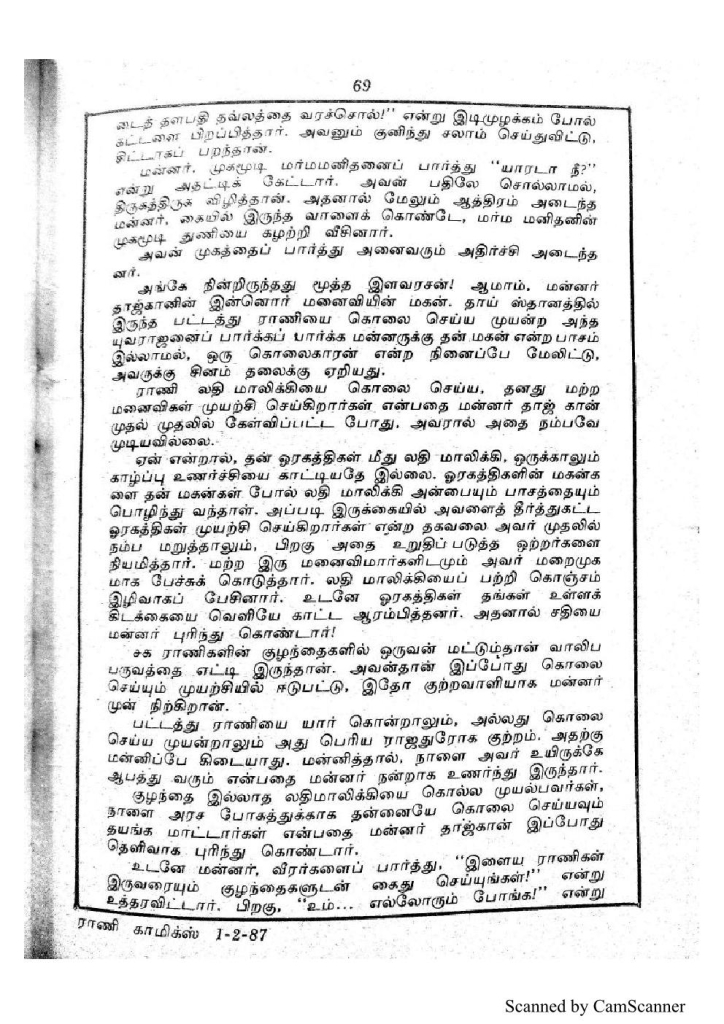 69
டைத் தளபதி தவ்லத்தை வரச்சொல்!" என்று இடிமுழக்கம் போல்
கட்டளை பிறப்பித்தார். அவனும் குனிந்து சலாம் செய்துவிட்டு,
சிட்டாகப் பறந்தான்.
மன்னர், முகமூடி மர்மமனிதனைப் பார்த்து "யாரடா நீ?"
என்று அதட்டிக் கேட்டார். அவன் பதிலே சொல்லாமல்,
திருகத்திருக விழித்தான். அதனால் மேலும் ஆத்திரம் அடைந்த
மன்னர், கையில் இருந்த வாளைக் கொண்டே, மர்ம மனிதனின்
முகமூடி துணியை கழற்றி வீசினார்.
அவன் முகத்தைப் பார்த்து அனைவரும் அதிர்ச்சி அடைந்த
னர்.
அங்கே நின்றிருந்தது மூத்த இளவரசன்! ஆமாம். மன்னர்
தாஜ்கானின் இன்னொர் மனைவியின் மகன். தாய் ஸ்தானத்தில்
இருந்த பட்டத்து ராணியை கொலை செய்ய முயன்ற அந்த
யுவராஜனைப் பார்க்கப் பார்க்க மன்னருக்கு தன் மகன் என்ற பாசம்
இல்லாமல், ஒரு கொலைகாரன் என்ற நினைப்பே மேலிட்டு,
அவருக்கு சினம் தலைக்கு ஏறியது.
ராணி லதி மாலிக்கியை கொலை செய்ய, தனது மற்ற
மனைவிகள் முயற்சி செய்கிறார்கள் என்பதை மன்னர் தாஜ் கான்
முதல் முதலில் கேள்விப்பட்ட போது, அவரால் அதை நம்பவே
முடியவில்லை.
ஏன் என்றால், தன் ஓரகத்திகள் மீது லதி மாலிக்கி, ஒருக்காலும்
காழ்ப்பு உணர்ச்சியை காட்டியதே இல்லை. ஓரகத்திகளின் மகன்க
ளை தன் மகன்கள் போல் லதி மாலிக்கி அன்பையும் பாசத்தையும்
பொழிந்து வந்தாள். அப்படி இருக்கையில் அவளைத் தீர்த்துகட்ட
ஓரகத்திகள் முயற்சி செய்கிறார்கள் என்ற தகவலை அவர் முதலில்
நம்ப மறுத்தாலும், பிறகு அதை உறுதிப் படுத்த ஒற்றர்களை
நியமித்தார். மற்ற இரு மனைவிமார்களிடமும் அவர் மறைமுக
மாக பேச்சுக் கொடுத்தார். லதி மாலிக்கியைப் பற்றி கொஞ்சம்
இழிவாகப் பேசினார். உடனே ஓரகத்திகள் தங்கள் உள்ளக்
கிடக்கையை வெளியே காட்ட ஆரம்பித்தனர். அதனால் சதியை
மன்னர் புரிந்து கொண்டார்!
சக ராணிகளின் குழந்தைகளில் ஒருவன் மட்டும்தான் வாலிப
பருவத்தை எட்டி இருந்தான். அவன்தான் இப்போது கொலை
செய்யும் முயற்சியில் ஈடுபட்டு, இதோ குற்றவாளியாக மன்னர்
முன் நிற்கிறான்.
பட்டத்து ராணியை யார் கொன்றாலும், அல்லது கொலை
செய்ய முயன்றாலும் அது பெரிய ராஜதுரோக குற்றம். அதற்கு
மன்னிப்பே கிடையாது. மன்னித்தால், நாளை அவர் உயிருக்கே
ஆபத்து வரும் என்பதை மன்னர் நன்றாக உணர்ந்து இருந்தார்.
குழந்தை இல்லாத லதிமாலிக்கியை கொல்ல முயல்பவர்கள்,
நாளை அரச போகத்துக்காக தன்னையே கொலை செய்யவும்
தயங்க மாட்டார்கள் என்பதை மன்னர் தாஜ்கான் இப்போது
தெளிவாக புரிந்து கொண்டார்.
உடனே மன்னர், வீரர்களைப் பார்த்து, "இளைய ராணிகள்
இருவரையும் குழந்தைகளுடன் கைது செய்யுங்கள்!" என்று
உத்தரவிட்டார். பிறகு, "உம்... எல்லோரும் போங்க!" என்று
ராணி காமிக்ஸ் 1-2-87
Scanned by CamScanner